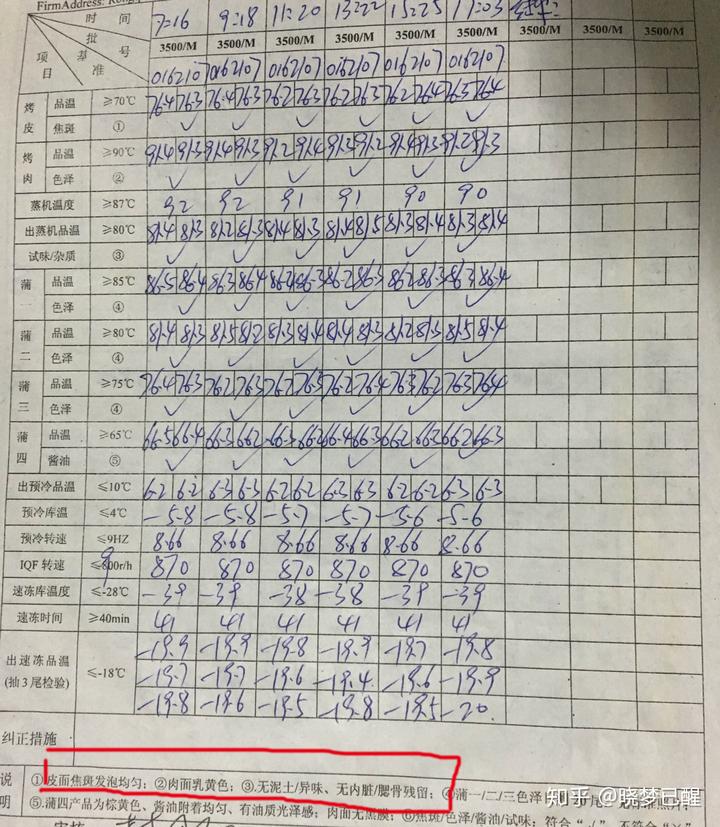 FirmAddress:
时 间 7:16 9:18 11:20 13:22 15:25 17:03
批 号 3500/M 3500/M 3500/M 3500/M 3500/M 3500/M 3500/M 3500/M 3500/M
项 目 基 准 0162107 0162107 0162107 0162107 0162107 0162107
烤皮 品温 ≥70℃ 76.4 76.3 76.4 76.3 76.2 76.3 76.2 76.3 76.2 76.4 76.3 76.4
焦斑 ① ✓ ✓ ✓ ✓ ✓ ✓
烤肉 品温 ≥90℃ 91.4 91.3 91.4 91.3 91.2 91.4 91.3 91.2 91.4 91.3 91.2 91.3
色泽 ② ✓ ✓ ✓ ✓ ✓ ✓
蒸机温度 ≥87℃ 92 92 91 91 90 90
出蒸机品温 ≥80℃ 81.4 81.3 81.2 81.3 81.4 81.3 81.4 81.5 81.3 81.4 81.3 81.4
试味/杂质 ③ ✓ ✓ ✓ ✓ ✓ ✓
蒲一 品温 ≥85℃ 86.5 86.4 86.3 86.4 86.4 86.3 86.2 86.3 86.2 86.3 86.3 86.4
色泽 ④ ✓ ✓ ✓ ✓ ✓ ✓
蒲二 品温 ≥80℃ 81.4 81.3 81.5 81.2 81.3 81.4 81.4 81.3 81.2 81.3 81.5 81.4
色泽 ④ ✓ ✓ ✓ ✓ ✓ ✓
蒲三 品温 ≥75℃ 76.4 76.3 76.2 76.3 76.2 76.3 76.2 76.4 76.3 76.2 76.3 76.4
色泽 ④ ✓ ✓ ✓ ✓ ✓ ✓
蒲四 品温 ≥65℃ 66.5 66.4 66.3 66.2 66.3 66.2 66.4 66.3 66.2 66.3 66.2 66.3
酱油 ⑤ ✓ ✓ ✓ ✓ ✓ ✓
出预冷品温 ≤10℃ 6.2 6.2 6.3 6.3 6.2 6.2 6.3 6.3 6.2 6.2 6.3 6.3
预冷库温 ≤4℃ -5.8 -5.8 -5.7 -5.7 -5.6 -5.6
预冷转速 ≤9HZ 8.66 8.66 8.66 8.66 8.66 8.66
IQF 转速 870 870 870 870 870 870
速冻库温度 ≤-28℃ -39 -39 -38 -38 -39 -39
速冻时间 ≥40min 41 41 41 41 41 41
出速冻品温 (抽3尾检验) ≤-18℃ -19.9 -19.9 -19.8 -19.9 -19.7 -19.8
-19.7 -19.7 -19.6 -19.4 -19.6 -19.9
-19.8 -19.6 -19.5 -19.8 -19.5 -20
纠正措施
说明 ①皮面焦斑发泡均匀；②肉面乳黄色；③.无泥土/异味、无内脏/鳃骨残留；④蒲一/二/三色泽
⑤.蒲四产品为棕黄色、酱油附着均匀、有油质光泽感；肉面无黑膜；⑥焦斑/色泽/酱油/试味：符合“✓”，不符合“×”
知乎 @晓梦已醒